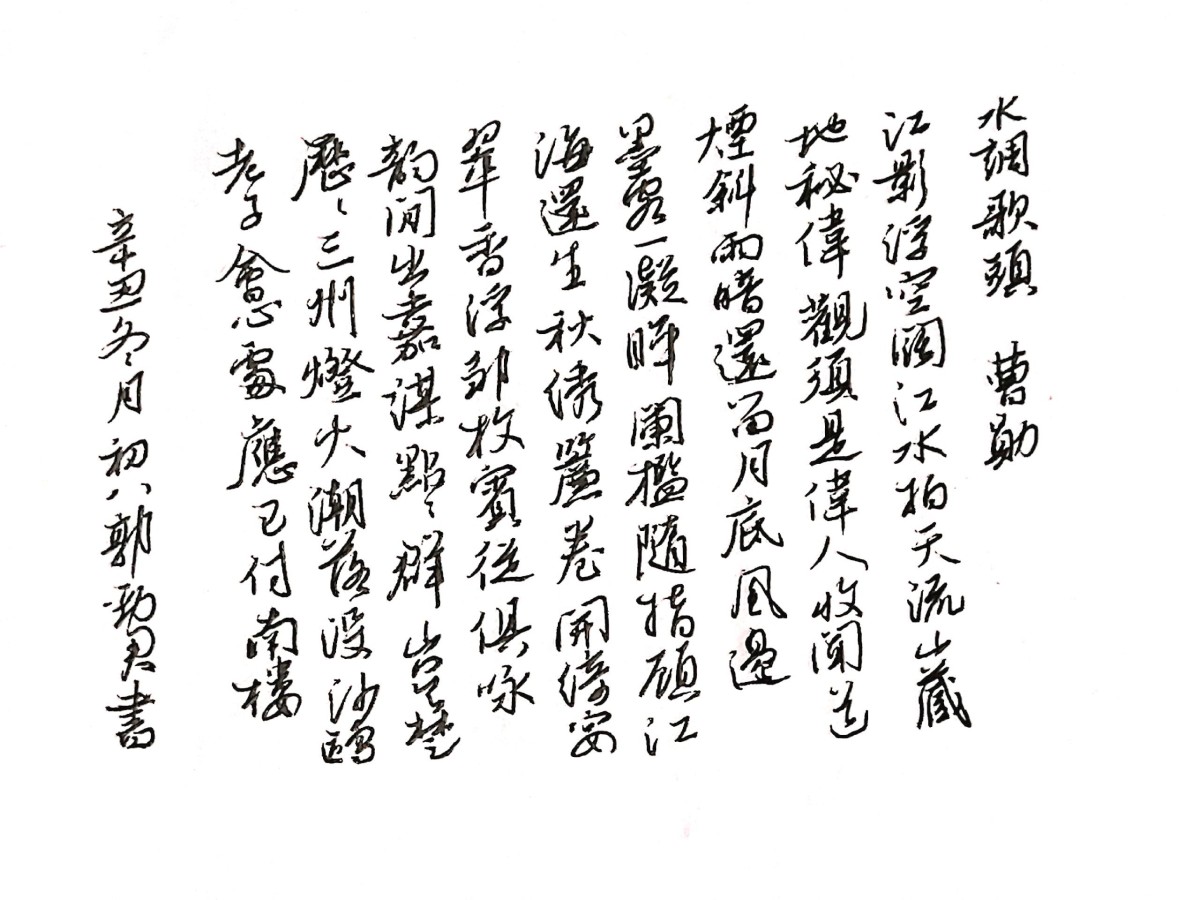 水調歌頭 曹勛
江影浮空闊江水拍天流山藏
地秘偉觀須是偉人收聞道
煙斜雨暗還當月底風邊
一凝眸闌檻隨指顧江
海還生秋绣簾卷開綺宴
翠香浮鄒枚賓從俱咏
韵间出嘉謀點〻群山吴楚
歷〻三州燈火潮落没沙鷗
老子會心處應已付南樓
辛丑冬月初八郭勁君書